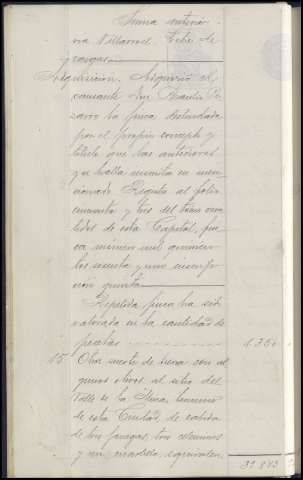 Suma anterior
ría Villarroel. Libre de
cargas
Adquisicion. Adquirió el
causante Don Benito Pi-
zarro la finca deslindada
por el propio concepto y
título que las anteriores
y se halla inscrita en men-
cionado Registro al folio
cincuenta y tres del tomo
de esta Capital, fin-
ca número mil quinien-
tos sesenta y uno inscrip-
ción quinta
Repetida finca ha sido
valorada en la cantidad de
pesetas 1.250
15 Otra suerte de tierra con al
gunos olivos al sitio del
Valle de la término
de esta Ciudad, de cabida
de tres fanegas, tres celemines
y un cuartillo, equivalen